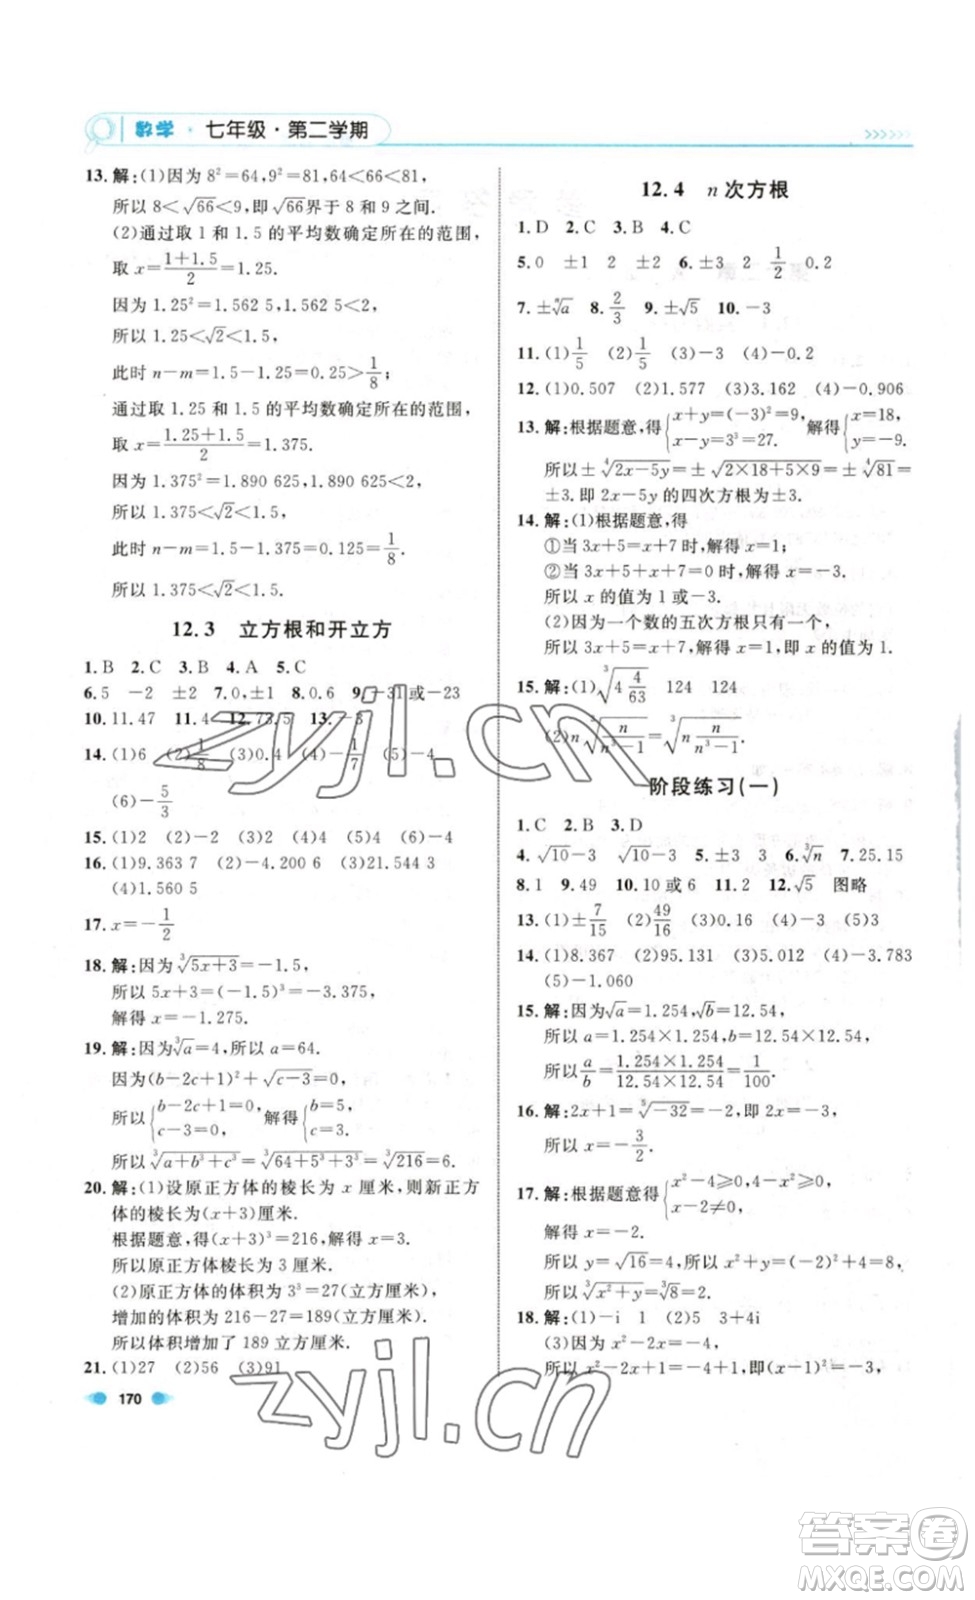 数学·七年级·第二学期
13.解:(1)因为 8²=64,9²=81,64<66<81,
所以 8<√66<9,即√66界于 8 和 9 之间.
(2)通过取 1 和 1.5 的平均数确定所在的范围,
取 x=(1+1.5)/2=1.25.
因为 1.25²=1.562 5,1.5625<2,
所以 1.25<√2<1.5,
此时 n-m=1.5-1.25=0.25>1/8;
通过取 1.25 和 1.5 的平均数确定所在的范围,
取 x=(1.25+1.5)/2=1.375.
因为 1.375²=1.890 625,1.890625<2,
所以 1.375<√2<1.5,
此时 n-m=1.5-1.375=0.125=1/8.
所以 1.375<√2<1.5.
12.3 立方根和开立方
1.B 2.C 3.B 4.A 5.C
6.5 -2 ±2 7.0,±1 8.0.6 9.-31或-23
10.11.47 11.4 12.73.5 13.-3
14.(1)6 (2)1/8 (3)0.4 (4)-1/7 (5)-4
(6)-5/3
15.(1)2 (2)-2 (3)2 (4)4 (5)4 (6)-4
16.(1)9.363 7 (2)-4.200 6 (3)21.544 3
(4)1.560 5
17.x=-1/2
18.解:因为∛(5x+3)=-1.5,
所以 5x+3=(-1.5)³=-3.375,
解得 x=-1.275.
19.解:因为∛a=4,所以 a=64.
因为(b-2c+1)²+√(c-3)=0,
所以{b-2c+1=0, c-3=0. 解得{b=5, c=3.
所以∛(a+b³+c³)=∛(64+5³+3³)=∛216=6.
20.解:(1)设原正方体的棱长为 x 厘米,则新正方
体的棱长为(x+3)厘米.
根据题意,得(x+3)³=216,解得 x=3.
所以原正方体棱长为 3 厘米.
(2)原正方体的体积为 3³=27(立方厘米),
增加的体积为 216-27=189(立方厘米).
所以体积增加了 189 立方厘米.
21.(1)27 (2)56 (3)91
170
12.4 n 次方根
1.D 2.C 3.B 4.C
5.0 ±1 2 ±2 6.±3 2 1/2 0.2
7.±ⁿ√a 8.2/3 9.±√5 10.-3
11.(1)1/5 (2)1/5 (3)-3 (4)-0.2
12.(1)0.507 (2)1.577 (3)3.162 (4)-0.906
13.解:根据题意,得{x+y=(-3)²=9, x-y=3³=27. 解得{x=18, y=-9.
所以±⁴√(2x-5y)=±√(2×18+5×9)=±⁴√81=
±3.即 2x-5y 的四次方根为±3.
14.解:(1)根据题意,得
①当 3x+5=x+7 时,解得 x=1;
②当 3x+5+x+7=0 时,解得 x=-3.
所以 x 的值为 1 或-3.
(2)因为一个数的五次方根只有一个,
所以 3x+5=x+7,解得 x=1.即 x 的值为 1.
15.解:(1)∛(4 4/63) 124 124
(2)n∛(n/(n³-1))=∛(n n/(n³-1)).
阶段练习(一)
1.C 2.B 3.D
4.√10-3 √10-3 5.±3 3 6.∛n 7.25.15
8.1 9.49 10.10 或 6 11.2 12.√5 图略
13.(1)±7/15 (2)49/16 (3)0.16 (4)-5 (5)3
14.(1)8.367 (2)95.131 (3)5.012 (4)0.200
(5)-1.060
15.解:因为√a=1.254,√b=12.54,
所以 a=1.254×1.254,b=12.54×12.54,
所以 a/b=(1.254×1.254)/(12.54×12.54)=1/100.
16.解:2x+1=⁵√-32=-2,即 2x=-3,
所以 x=-3/2.
17.解:根据题意得{x²-4⩾0,4-x²⩾0, x-2≠0,
解得 x=-2.
所以 y=√16=4,所以 x²+y=(-2)²+4=8,
所以∛(x²+y)=∛8=2.
18.解:(1)-i 1 (2)5 3+4i
(3)因为 x²-2x=-4,
所以 x²-2x+1=-4+1,即(x-1)²=-3,
zyjl.cn
zyjl.cn
答案卷
MXQE.COM